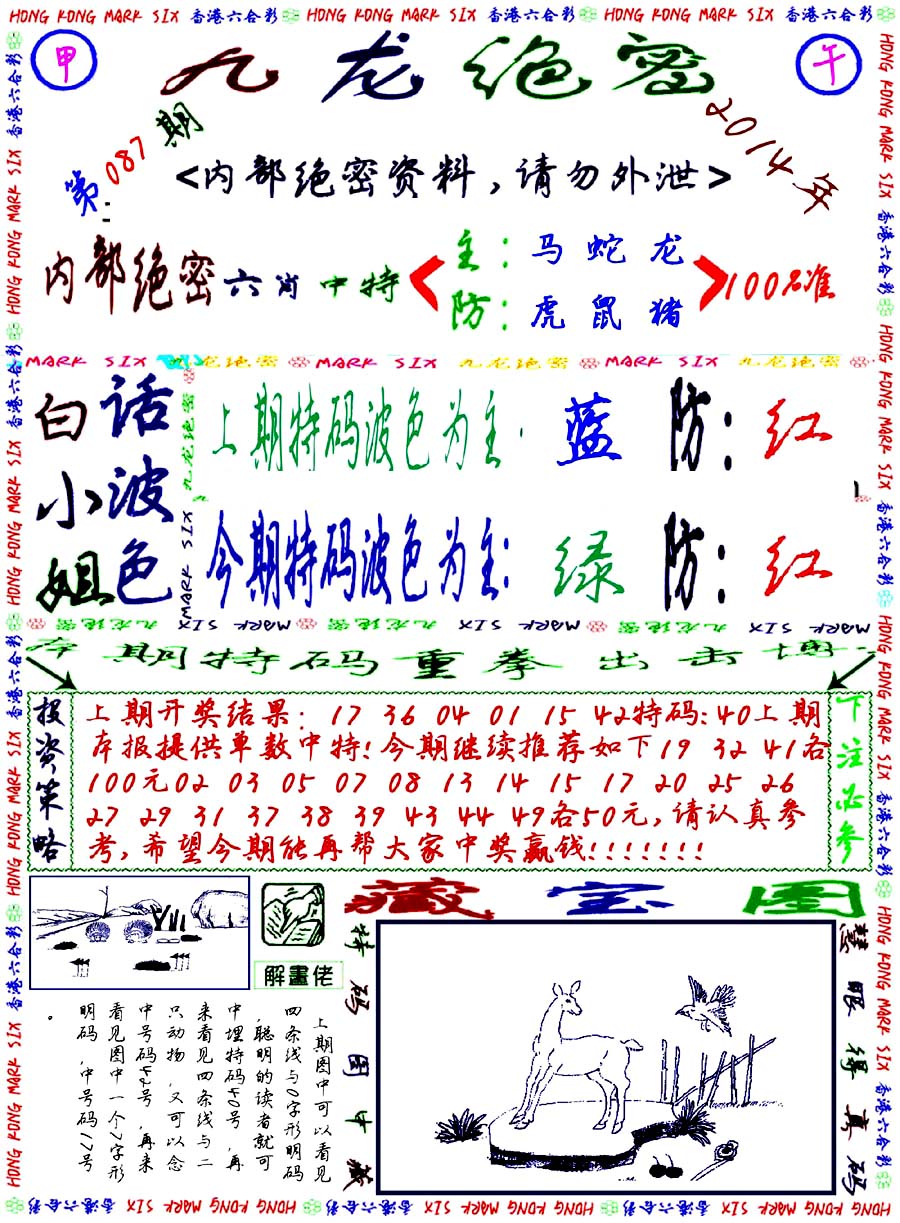 HONG KONG MARK SIX 香港六合彩 HONG KONG MARK SIX 香港六合彩 HONG KONG MARK SIX 香港六合彩
甲
九龙绝密
午
第087期
2014年
<内部绝密资料,请勿外泄>
内部绝密六肖中特
主:马蛇龙
防:虎鼠猪
100%准
MARK SIX 九龙绝密 MARK SIX 九龙绝密 MARK SIX 九龙绝密
白小姐
话波色
上期特码波色为主.蓝 防:红
今期特码波色为主:绿 防:红
九龙绝密 MARK SIX
九龙绝密 XIS MARK 九龙绝密 XIS MARK 九龙绝密 XIS MARK
本期特码重拳出击博
投资策略
上期开奖结果:17 36 04 01 15 42特码:40上期
本报提供单数中特!今期继续推荐如下19 32 41各
100元02 03 05 07 08 13 14 15 17 20 25 26
27 29 31 37 38 39 43 44 49各50元,请认真参
考,希望今期能再帮大家中奖赢钱!!!!!!!
下注必参
解畫佬
藏宝图
上期图中可以看见
四条线与0字形明码
,聪明的读者就可
中埋特码40号,再
来看见四条线与二
只动物,又可以念
中号码42号,再来
看见图中一个7字形
明码,中号码17号
。
特码图中藏
慧眼得真码
HONG KONG MARK SIX 香港六合彩